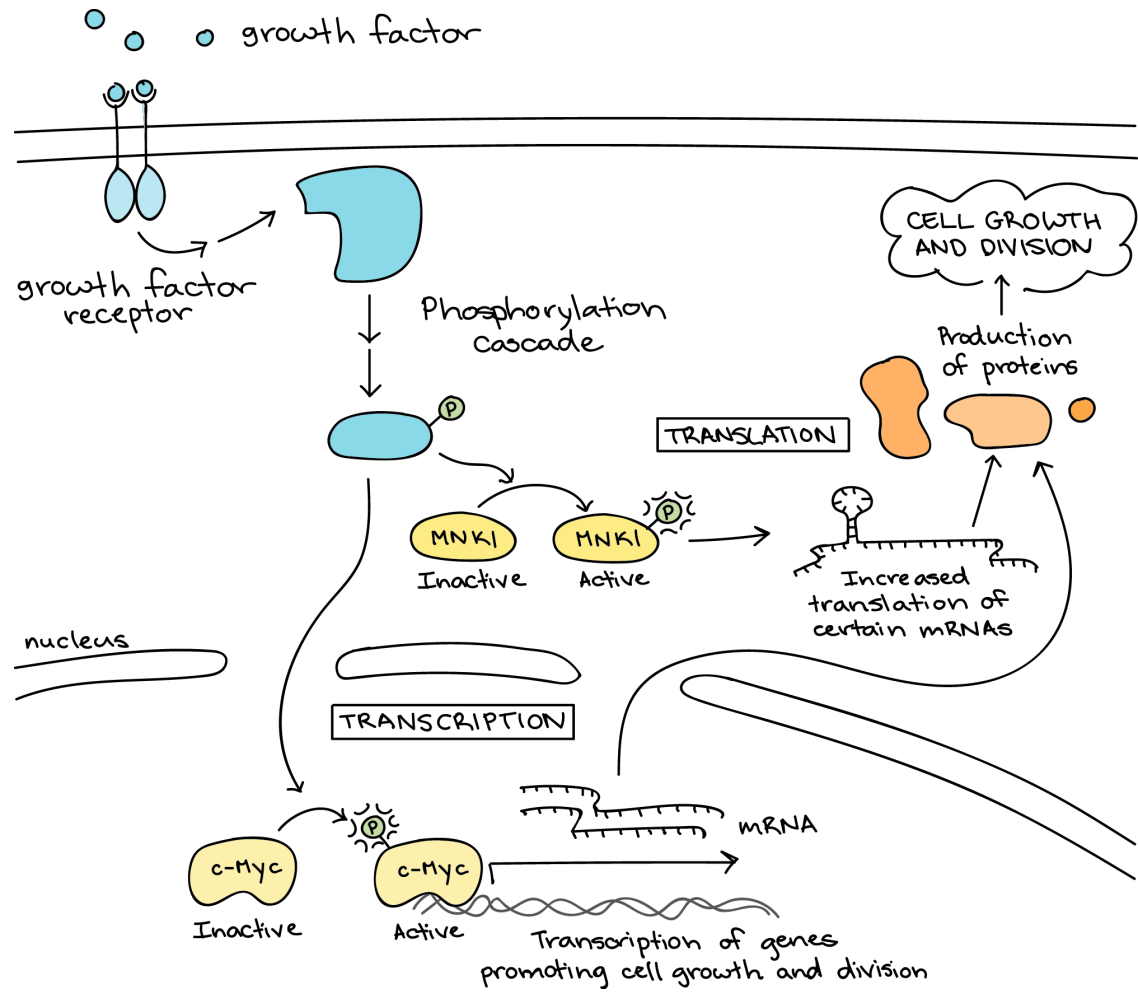 growth factor
growth factor
receptor
Phosphorylation
cascade
CELL GROWTH
AND DIVISION
Production
of proteins
P
TRANSLATION
MNK1
Inactive
MNK1
Active
P
Increased
translation of
certain mRNAs
nucleus
TRANSCRIPTION
P
c-Myc
Inactive
c-Myc
Active
mRNA
Transcription of genes
promoting cell growth and division